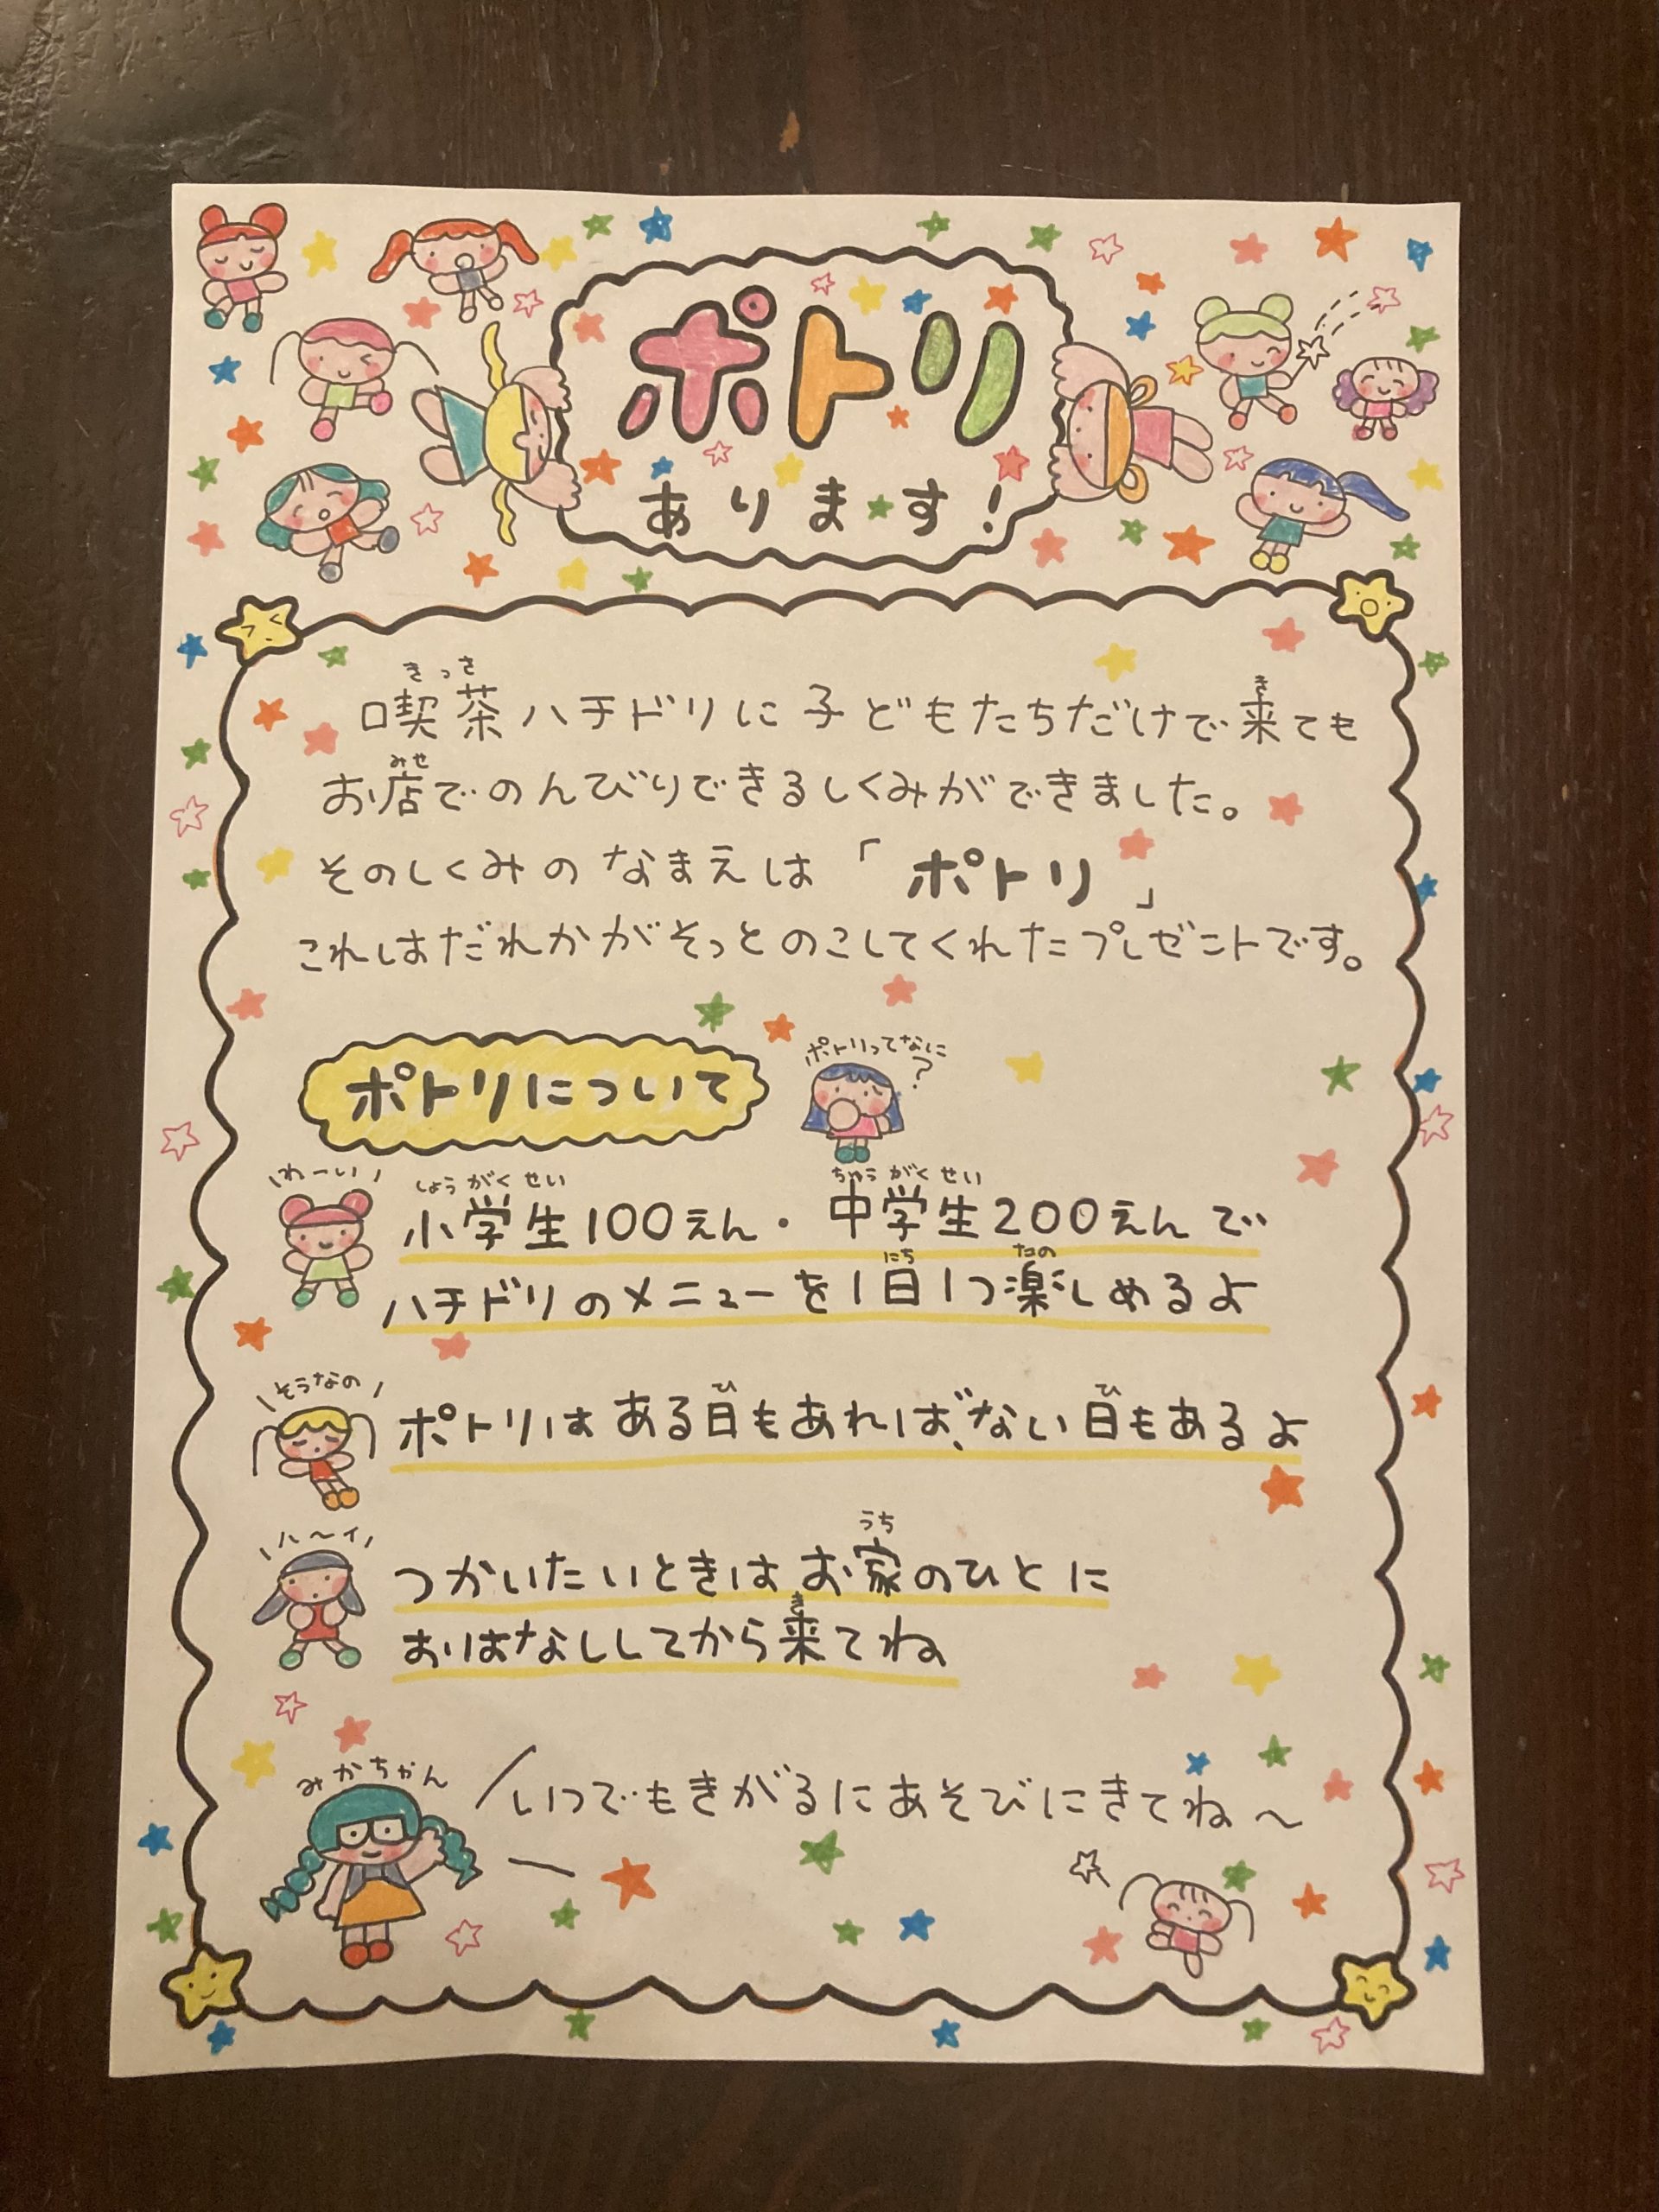 ポトリ
あります!
きっさ
き
喫茶ハチドリに子どもたちだけで来ても
みせ
お店でのんびりできるしくみができました。
そのしくみのなまえは「ポトリ」
これはだれかがそっとのこしてくれたプレゼントです。
ポトリについて
ポトリってなに?
わーい
しょうがくせい ちゅうがくせい
小学生100えん・中学生200えんで
にち たの
ハチドリのメニューを1日1つ楽しめるよ
そうなの
ひ ひ
ポトリはある日もあれば、ない日もあるよ
ハ〜イ
うち
つかいたいときはお家のひとに
き
おはなししてから来てね
みかちゃん
いつでもきがるにあそびにきてね〜